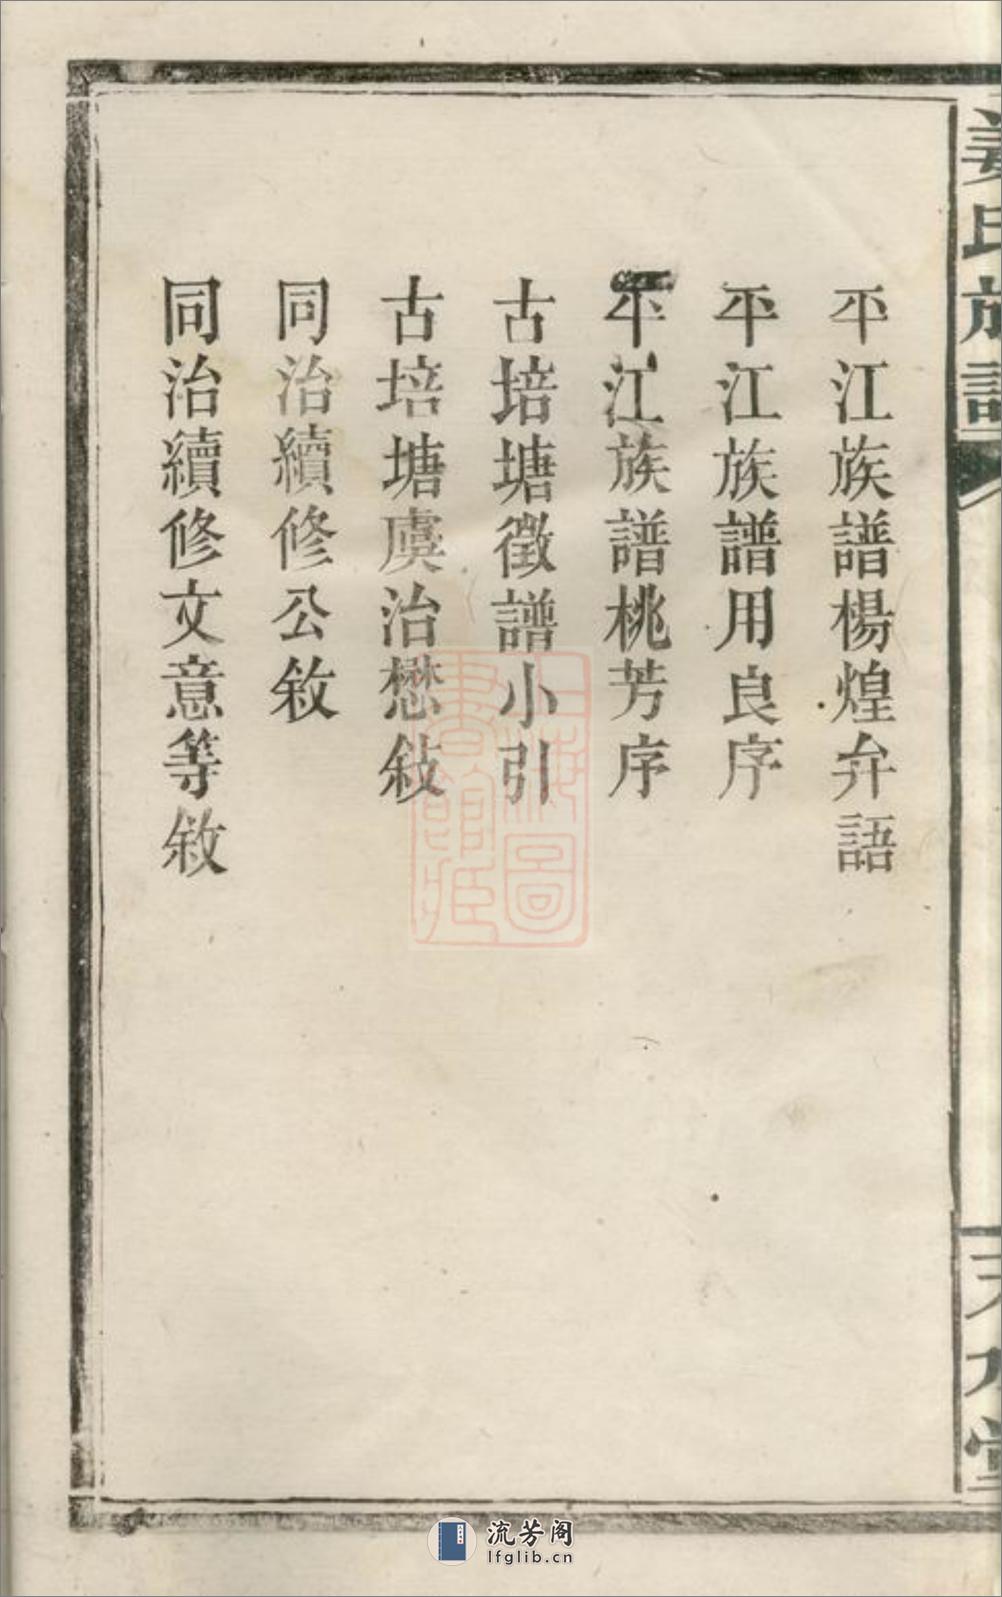 姜氏族譜
天水堂
平江族譜楊煌弁語
平江族譜用良序
平江族譜桃芳序
古培塘徵譜小引
古培塘虞治懋敍
同治續修公敘
同治續修文意等敘
上海圖書館藏
流芳阁
lfglib.cn